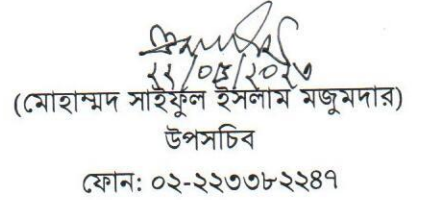 ২২/০৫/২০২৩
(মোহাম্মদ সাইফুল ইসলাম মজুমদার)
উপসচিব
ফোন: ০২-২২৩৩৮২২৪৭